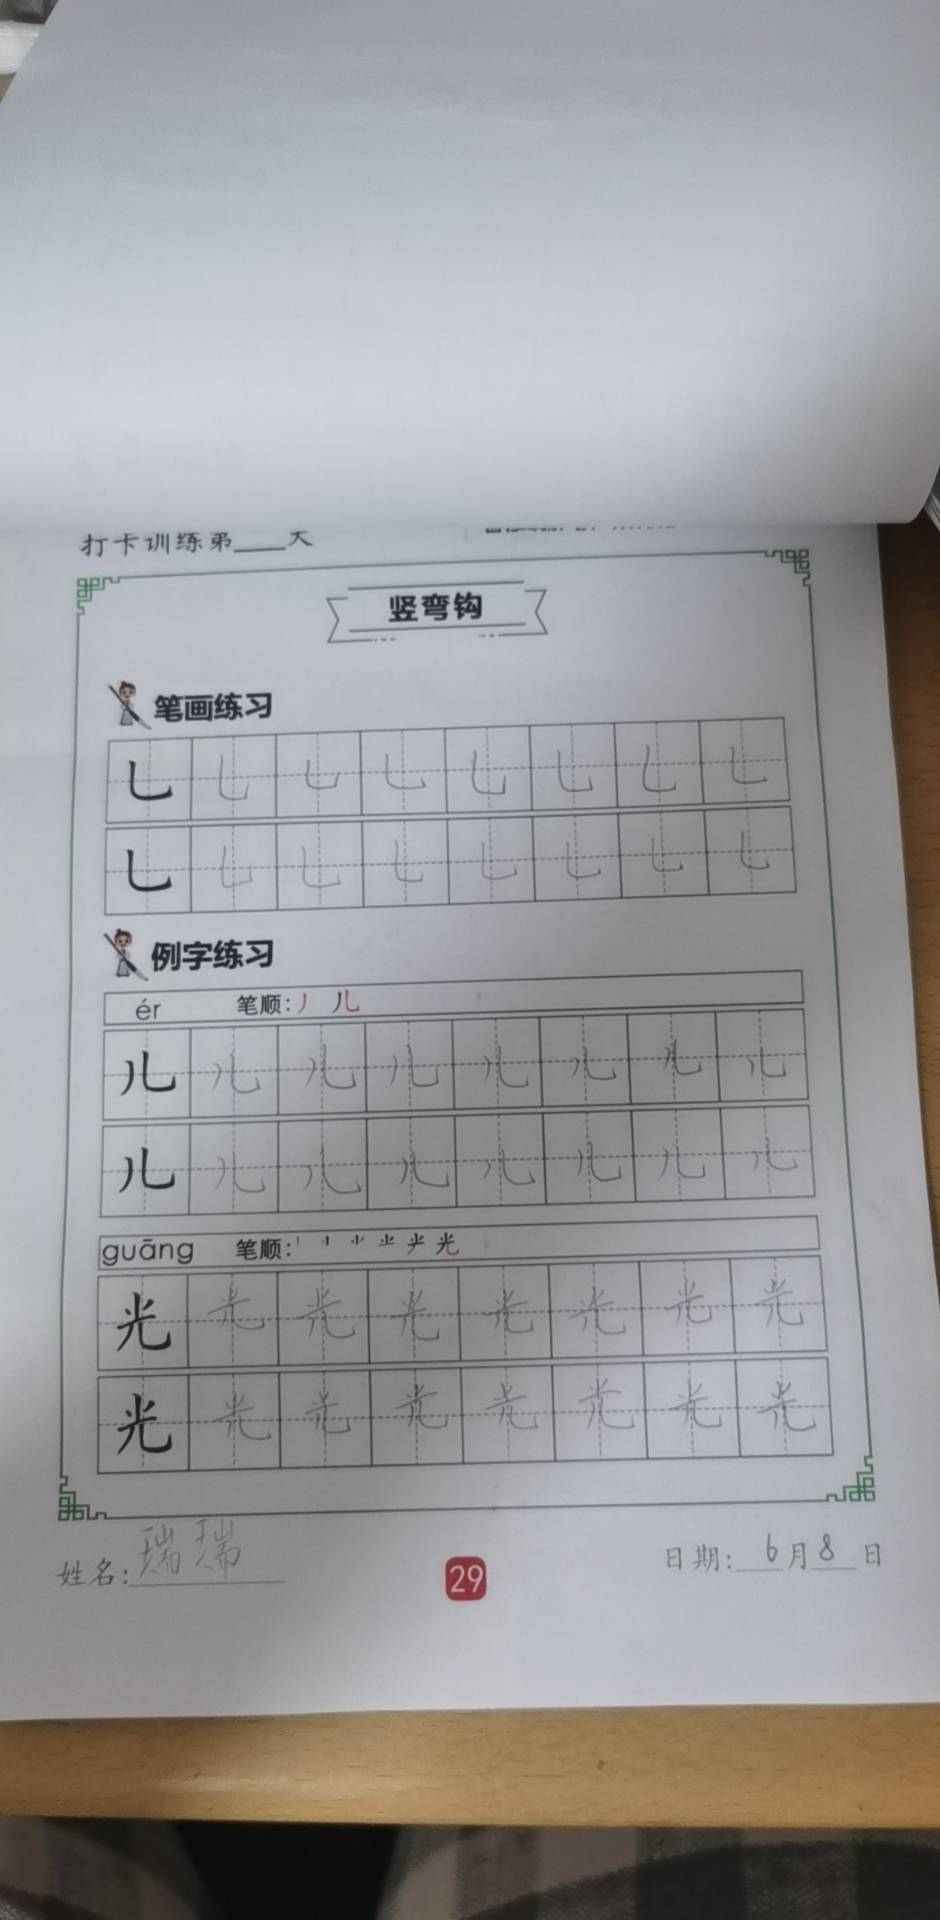 打卡训练第___天
竖弯钩
笔画练习
乚 乚 乚 乚 乚 乚 乚 乚
乚 乚 乚 乚 乚 乚 乚 乚
例字练习
ér 笔顺:丿 儿
儿 儿 儿 儿 儿 儿 儿 儿
儿 儿 儿 儿 儿 儿 儿 儿
guāng 笔顺: 光
光 光 光 光 光 光 光 光
光 光 光 光 光 光 光 光
姓名:瑞瑞 29 日期: 6月8日